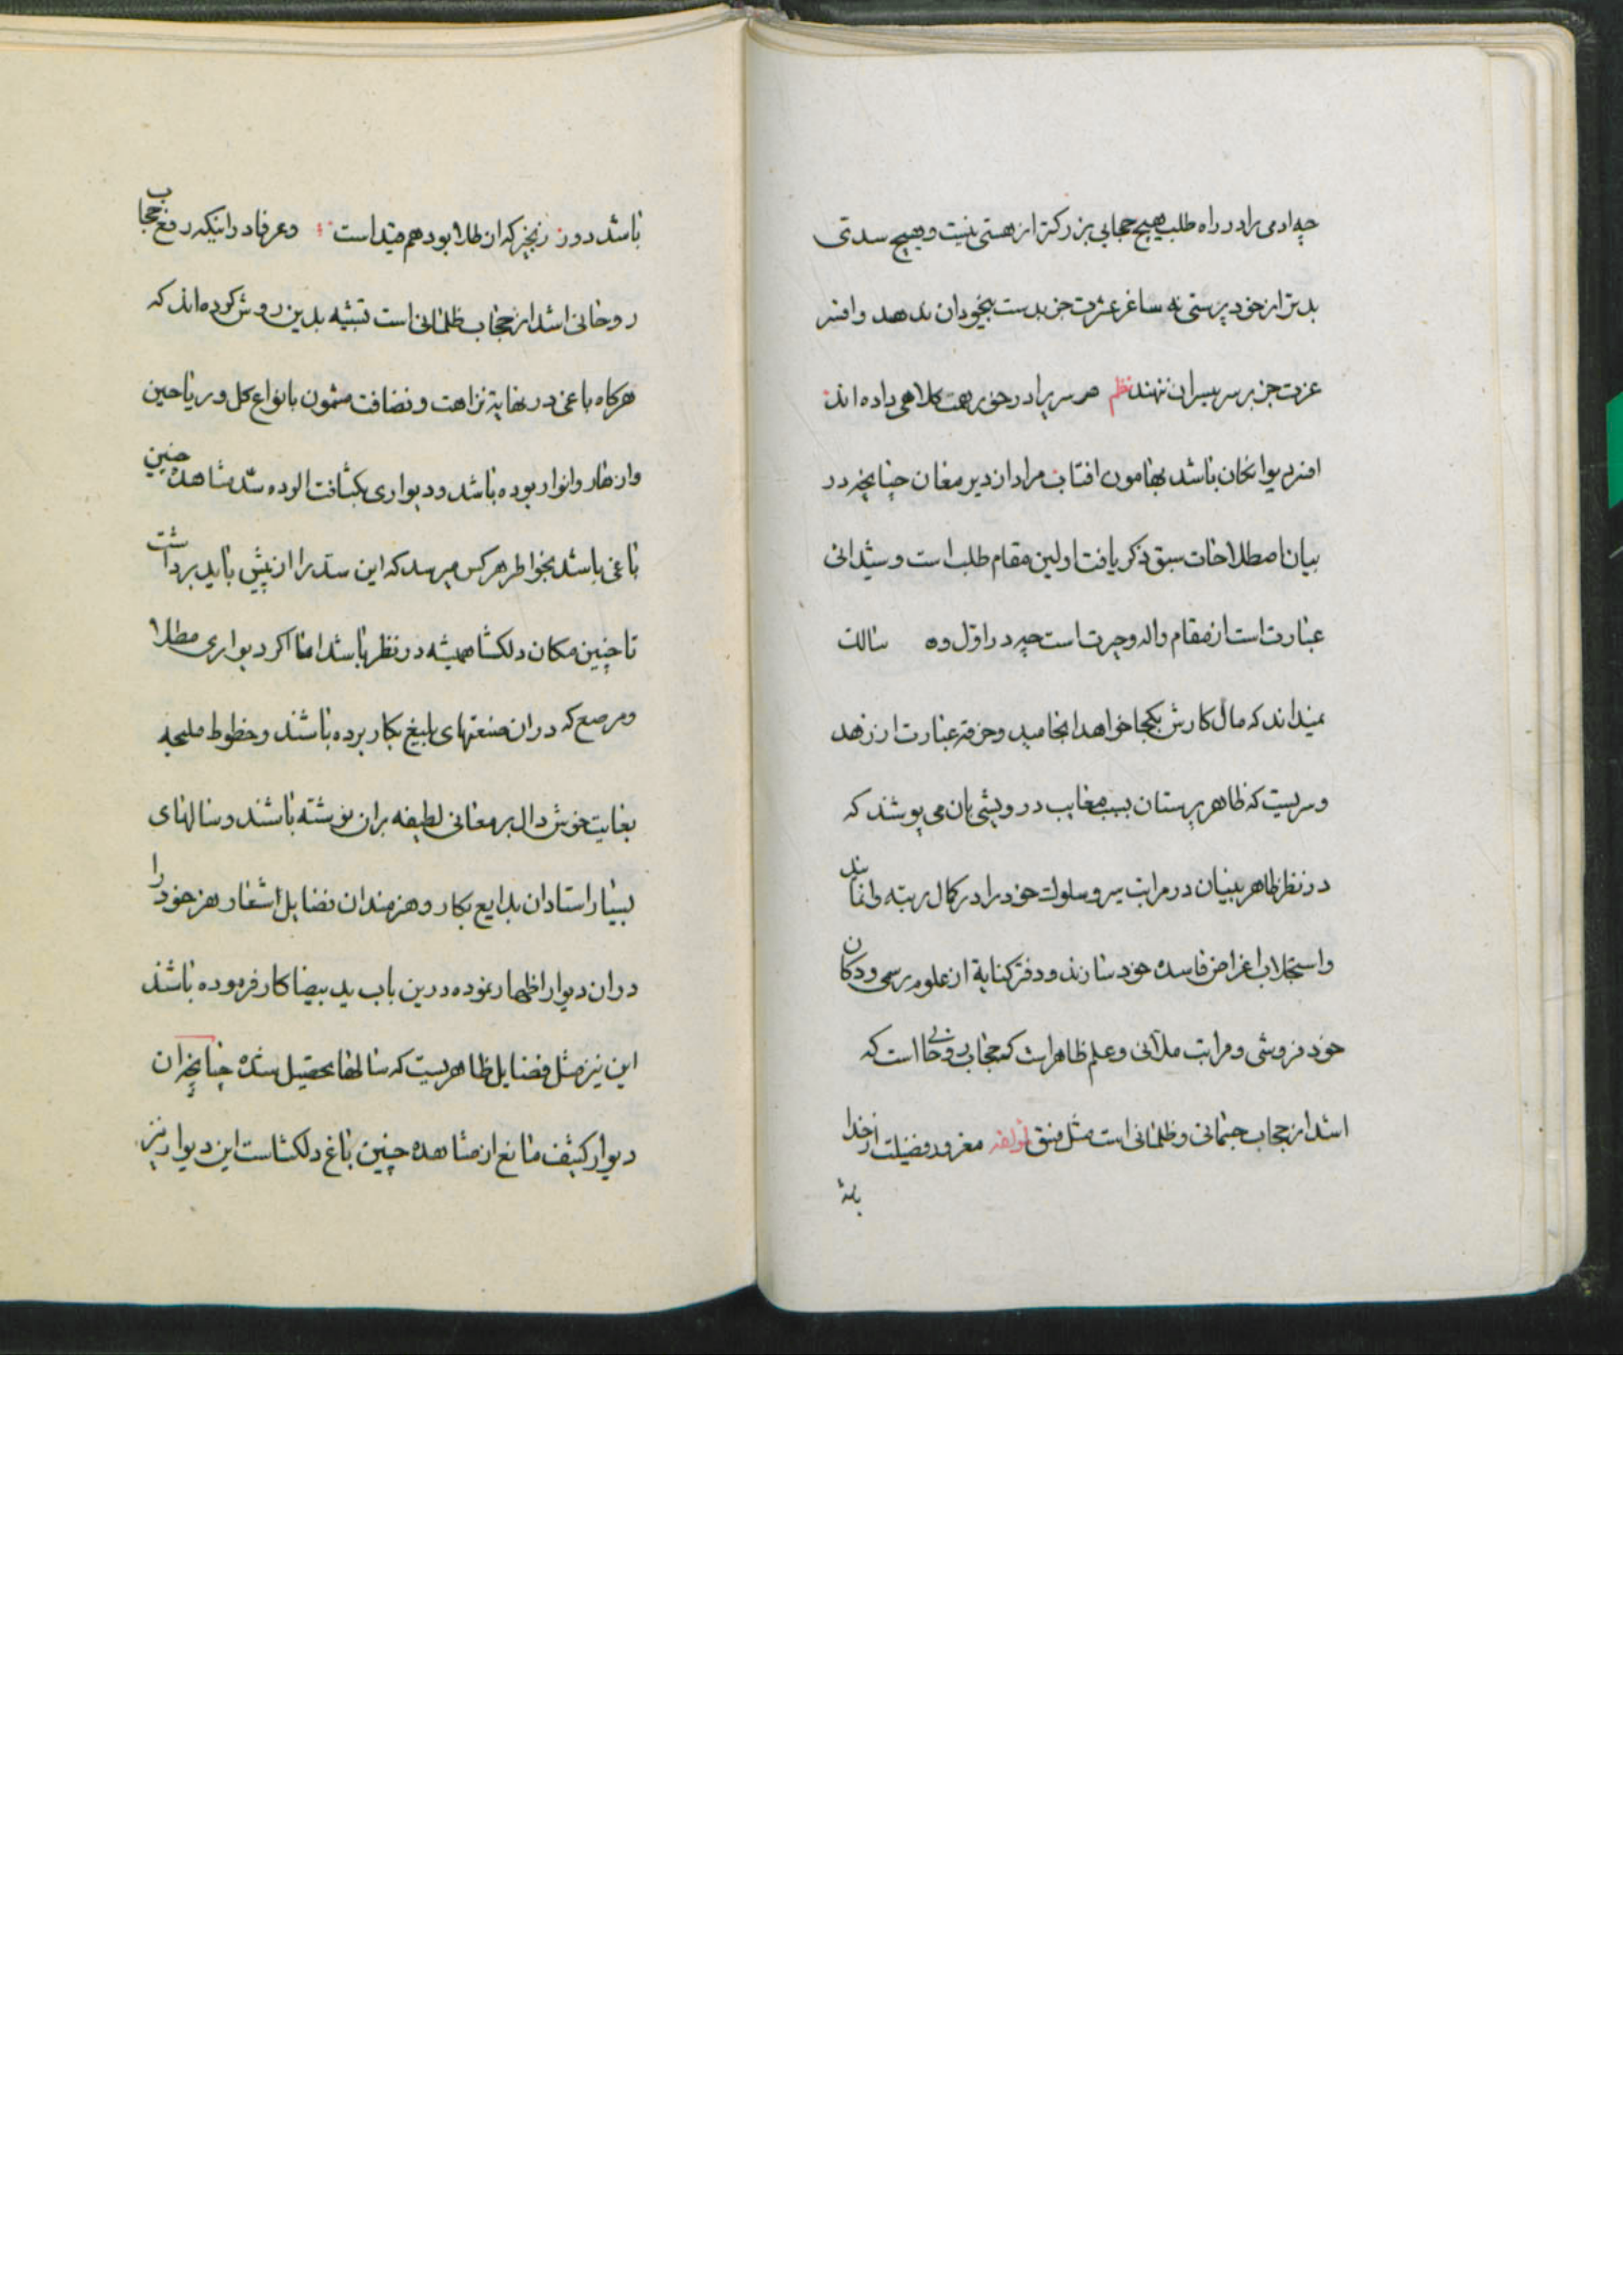 چه ادمی را در راه طلب هیچ حجابی بزرکتر از هستی نیست و هیچ سدی
بدتر از خود پرستی نه ساغر عشرت جز بدست بیخودان ندهد و افسر
عزت جز بر سر بیسران ننهند نظم هر سریرا در خور همت کلاهی داده اند
افسر دیوانکان باشد بهامون افتاب مراد از دیر مغان چنانچه در
بیان اصطلاحات سبق ذکر یافت اولین مقام طلب است و شیدائی
عبارت است از مقام واله و حیرت است چه در اول وه سالک
نمیداند که مال کارش بکجا خواهد انجامید و خرقه عبارت از زهد
و سریست که ظاهر پرستان بسبب معایب درویشی بان می پوشند که
در نظر ظاهر بینان در مراتب سیر و سلوک خود را در کمال رتبه وانمایند
و استجلاب اغراض فاسده خود سازند و دفتر کنایة از علوم رسمی و دکان
خود فروشی و مراتب ملائی و علم ظاهر است که حجاب روحانی است که
اشد از حجاب جسمانی و ظلمانی است مثل فسق لمؤلفه مغرور فضیلت از خدا
باشد
باشد دور زنجیر که از طلا بود هم قید است وعرفا در اینکه رفع حجاب
روحانی اشد از حجاب ظلمانی است تشبیه بدین روش کرده اند که
هرکاه باغی در نهایة نزاهت و نضافت مشحون بانواع کل و ریاحین
وازهار و انوار بوده باشد و دیواری بکثافت الوده سدّ مشاهده چنین
باغی باشد بخواطر هر کس میرسد که این سد را از پیش باید برداشت
تا چنین مکان دلکشا همیشه در نظر باشد اما اکر دیواری مطلا
ومرصع که دران صنعتهای بلیغ بکار برده باشند و خطوط ملیحه
بغایت خوش دال بر معانی لطیفه بران نوشته باشند و سالهای
بسیار استادان بدایع بکار و هنرمندان فضایل اشعار هنر خود را
دران دیوار اظهار نموده درین باب ید بیضا کار فرموده باشند
این نیز مثل فضایل ظاهریست که سالها تحصیل شده چنانچه ان
دیوار کثیف مانع از مشاهده چنین باغ دلکشاست این دیوار نیز